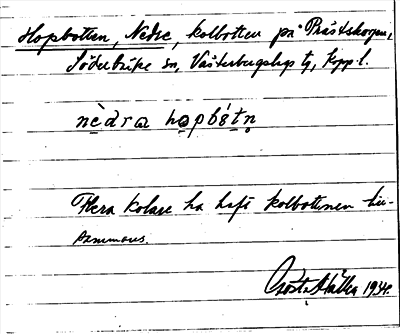 Hopbotten, Nedre, kolbotten på Prästskogen,
Söderbärke sn, Västerbergslags tg, Kopp l.
nèdra hopbótn̥
Flera kolare ha haft kolbottnen till-
sammans.
Gösta 1934.